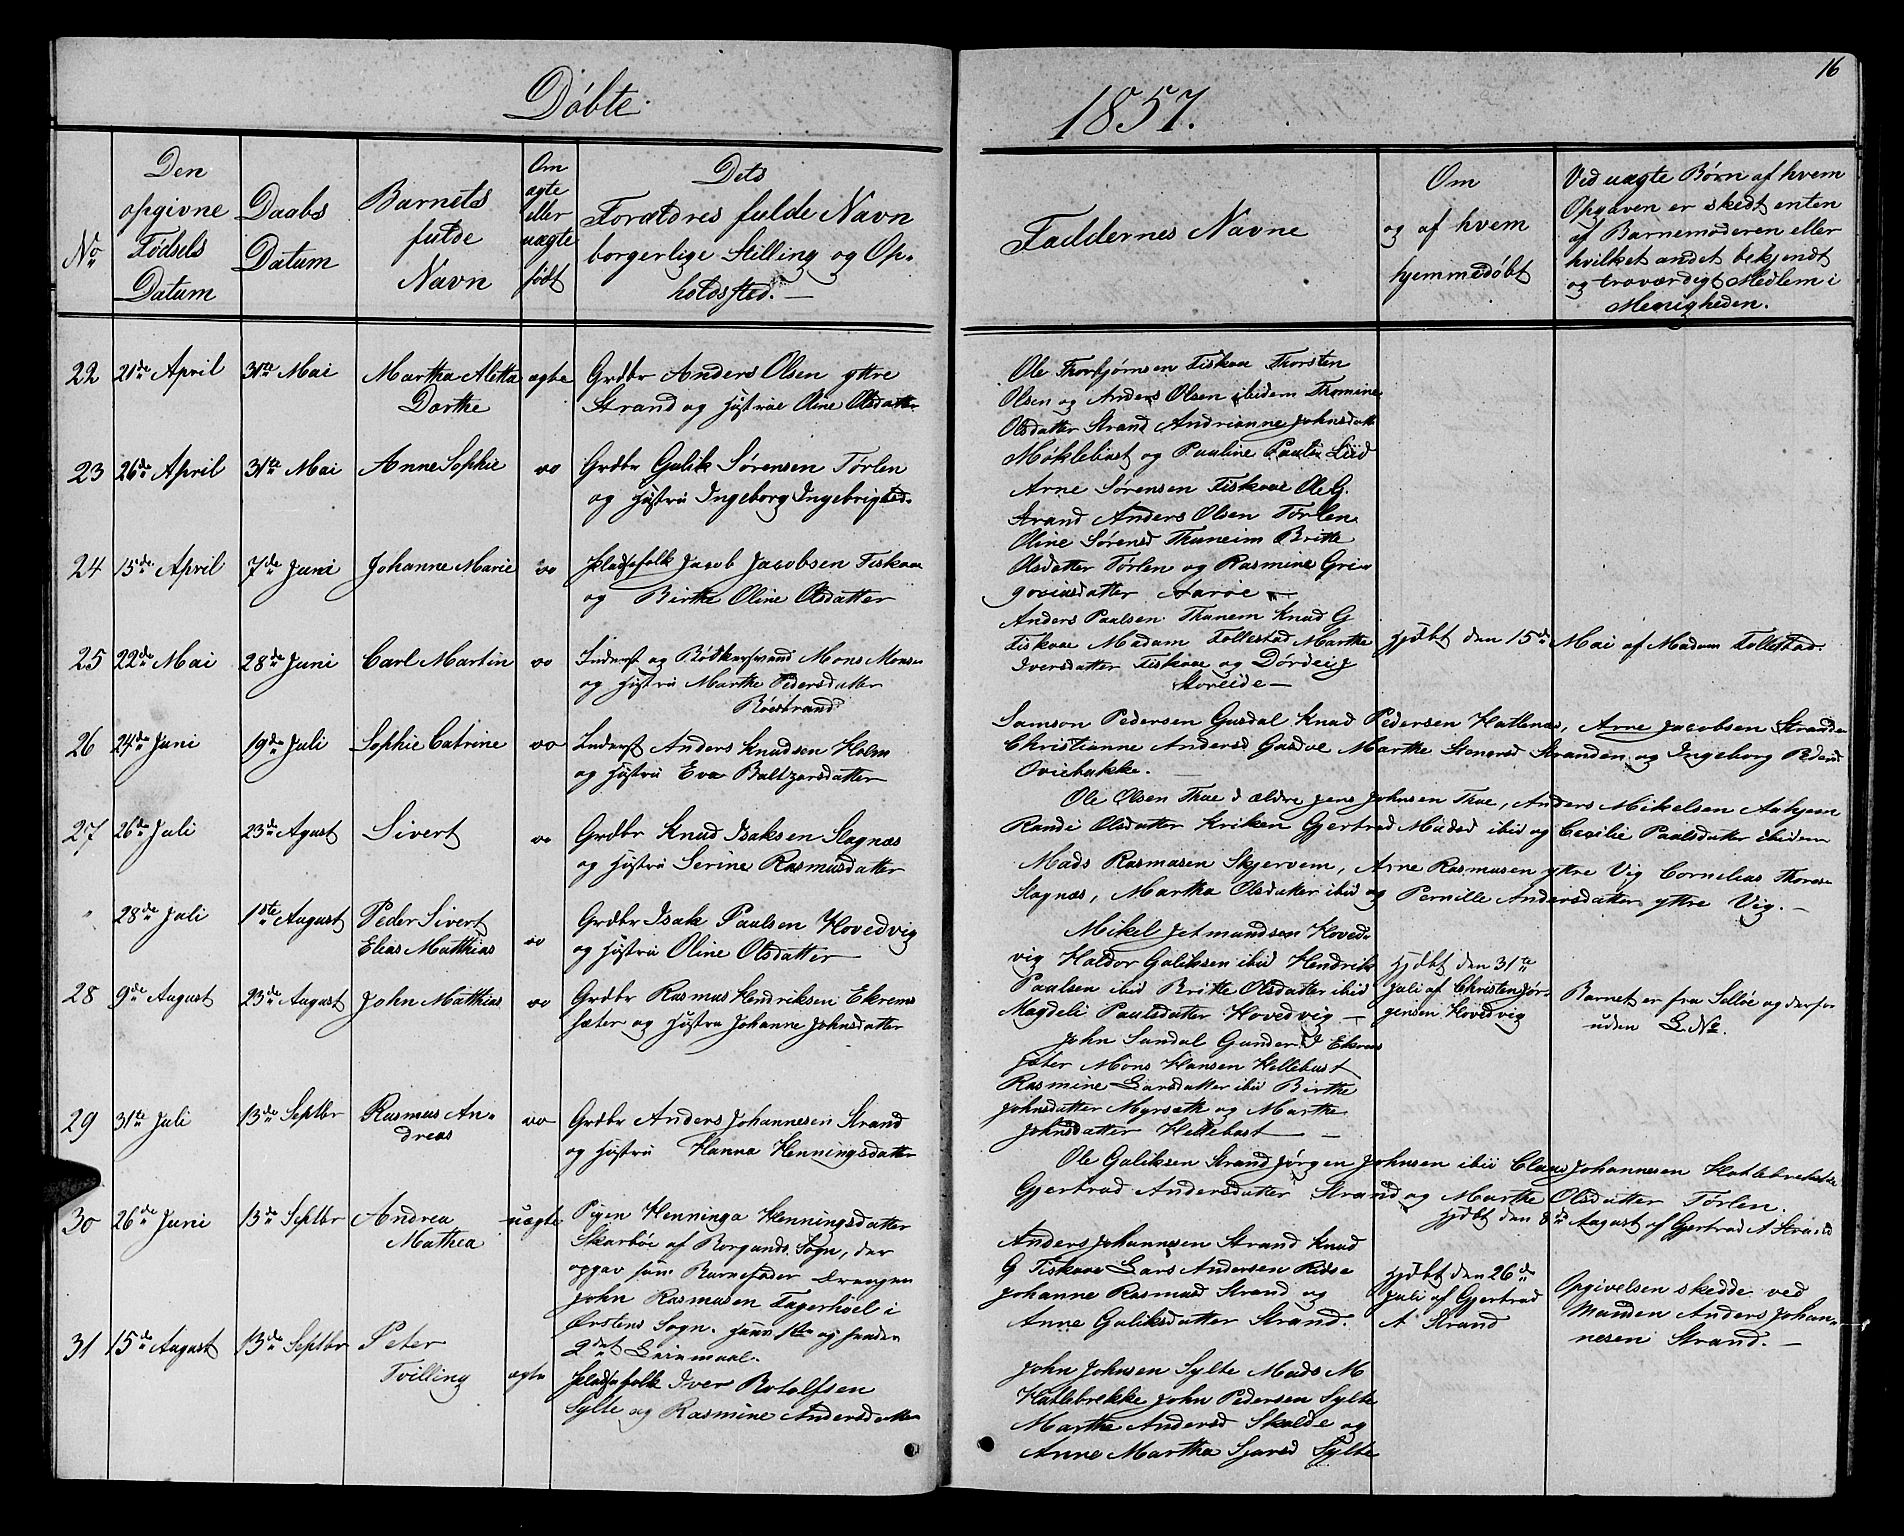 Döbte.
1857.
16
No
Den
opgivne
Födsels
Datum
Daabs
Datum
Barnets
fulde
Navn
Om
ægte
eller
uægte
födt
Dets
Forældres fulde Navn
borgerlige Stilling og Op-
holdssted. —
Faddernes Navne
Om
og af hvem
hjemmedöbt
Ved uægte Börn af hvem
Opgaven er skedt enten
af Barnemoderen eller
hvilket andet bekjendt
og troværdigt Medlem i
Menigheden.
22 21de April 31te Mai Martha Aletta ægte Grdbr Anders Olsen yttre
Dorthe Strand og Hustrue Oline Olsdatter
Ole Thorbjørnsen Fiskaae Thorsten
Olsen og Anders Olsen ibidem Thomine
Olsdatter Strand Andrianne Johnsdatt
Møklebust og Pauline Paulsd Liid
23 26de April 31te Mai Anne Sophie oo Grdbr Gulik Sørensen Tørlen
og Hustru Ingeborg Ingebrigtsd.
Arne Sørensen Fiskaae Ole G.
Strand Anders Olsen Tørlen
Oline Sørensd Thuneim Brithe
Olsdatter Tørlen og Rasmine Gre-
goriusdatter Aaröe —
24 15de April 7de Juni Johanne Marie oo Pladsfolk Jacob Jacobsen Fiskaae
og Birthe Oline Olsdatter
Anders Paulsen Thunem Knud G
Fiskaae Madam Follestad Marthe
Iversdatter Fiskaae og Dördei J
Storeide —
Hjdbt den 15de Mai af Madam Follestad.
25 22de Mai 28de Juni Carl Martin oo Inderst og Bödkersvend Mons Monsen
og Hustru Marthe Pedersdatter
Röisstrand
Samson Pedersen Gusdal Knud Pedersen Hatlenæs, Arne Jacobsen Stranden
Christianne Andersd Gasdal Marthe Stenersd Stranden og Ingeborg Pedersd
Oviebakke. —
26 24de Juni 19de Juli Sophie Catrine oo Inderst Anders Knudsen Holm
og Hustru Eva Baltzersdatter
Ole Olsen Thue d ældre Jens Johnsen Thue, Anders Mikelsen Aahjem
Randi Olsdatter Kriken Gjertrud Madsd ibid og Cecilie Paulsdatter ibidem
27 26de Juli 23de Agust Sivert oo Grdbr Knud Isaksen Slagnæs
og Hustru Serine Rasmusdatter
Mads Rasmusen Skjervem, Arne Rasmusen yttre Vig Cornelius Thores
Slagnæs, Martha Olsdatter ibid og Pernille Andersdatter yttre Vig. —
" 28de Juli 1ste August Peder Sivert
Elias Matthias oo Grdbr Isak Paulsen Hovedvig
og Hustru Oline Olsdatter
Mikel Jetmundsen Hoved-
vig Haldor Guliksen ibid Hendrik
Paulsen ibid Brithe Olsdatter ibid
Magdeli Paulsdatter Hovedvig —
Hjdbt den 31te
Juli af Christen Jör-
gensen Hovedvig
Barnet er fra Selløe og derfor
uden L No.
28 9de August 23de August John Matthias oo Grdbr Rasmus Hendriksen Ekrem
sæter og Hustru Johanne Johnsdatter
John Sundal Gunder I Ekrem
sæter Mons Hansen Hellebust
Rasmine Larsdatter ibid Birthe
Johnsdatter Myrseth og Marthe
Johnsdatter Hellebust —
29 31te Juli 13de Septbr Rasmus An-
dreas oo Grdbr Anders Johannesen Strand
og Hustru Hanna Henningsdatter
Ole Guliksen Strand Jörgen Johnsen ibid Claus Johannesen Hatlebrekke
Gjertrud Andersdatter Strand og Marthe Olsdatter Tørlen.
Hjdbt den 8de August af Gjertrud A Strand
30 26de Juni 13de Septbr Andrea
Mathea uægte Pigen Henninga Henningsdatter
Skarböe af Borgunds Sogn, der
opgav som Barnefader Drengen
John Rasmusen Fagerhoel i
Ørstens Sogn. Hans 1te og hendes
2det Leiermaal.
Anders Johannesen Strand Knud
G Fiskaae Lars Andersen Ridse
Johanne Rasmusd Strand og
Anne Guliksdatter Strand.
Hjdbt den 26de
Juli af Gjertrud
A Strand
Opgivelsen skedde ved
Manden Anders Johan-
nesen Strand. —
31 15de August 13de Septbr Peter
Tvilling ægte Pladsfolk Iver Botolfsen
Sylte og Rasmine Andersdatter
John Johnsen Sylte Mads M
Hatlebrekke John Pedersen Sylte
Marthe Andersd Skulde og
Anne Martha Sjursd Sylte